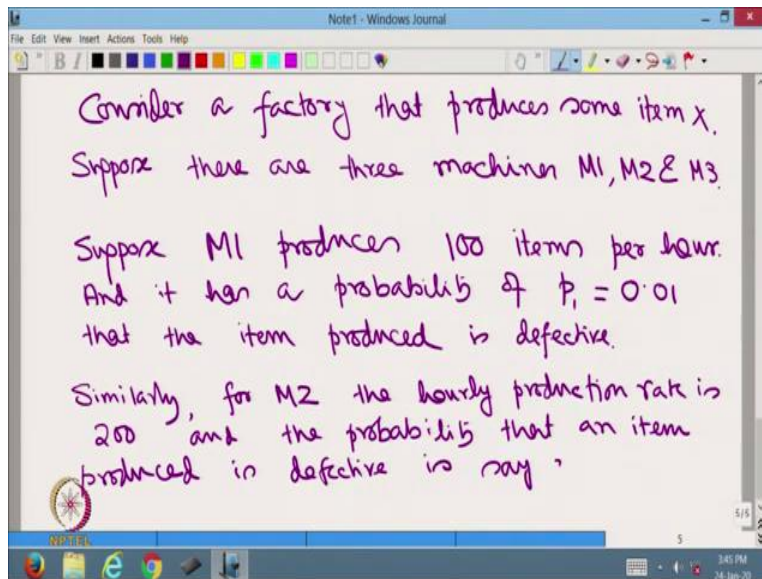 Note1 - Windows Journal
File Edit View Insert Actions Tools Help
B I
Consider a factory that produces some item X.
Suppose there are three machines M1, M2 & M3.
Suppose M1 produces 100 items per hour.
And it has a probability of p₁ = 0.01
that the item produced is defective.
Similarly, for M2 the hourly production rate is
200 and the probability that an item
produced is defective is say
NPTEL
5/5
5
3:45 PM
24-Jan-20